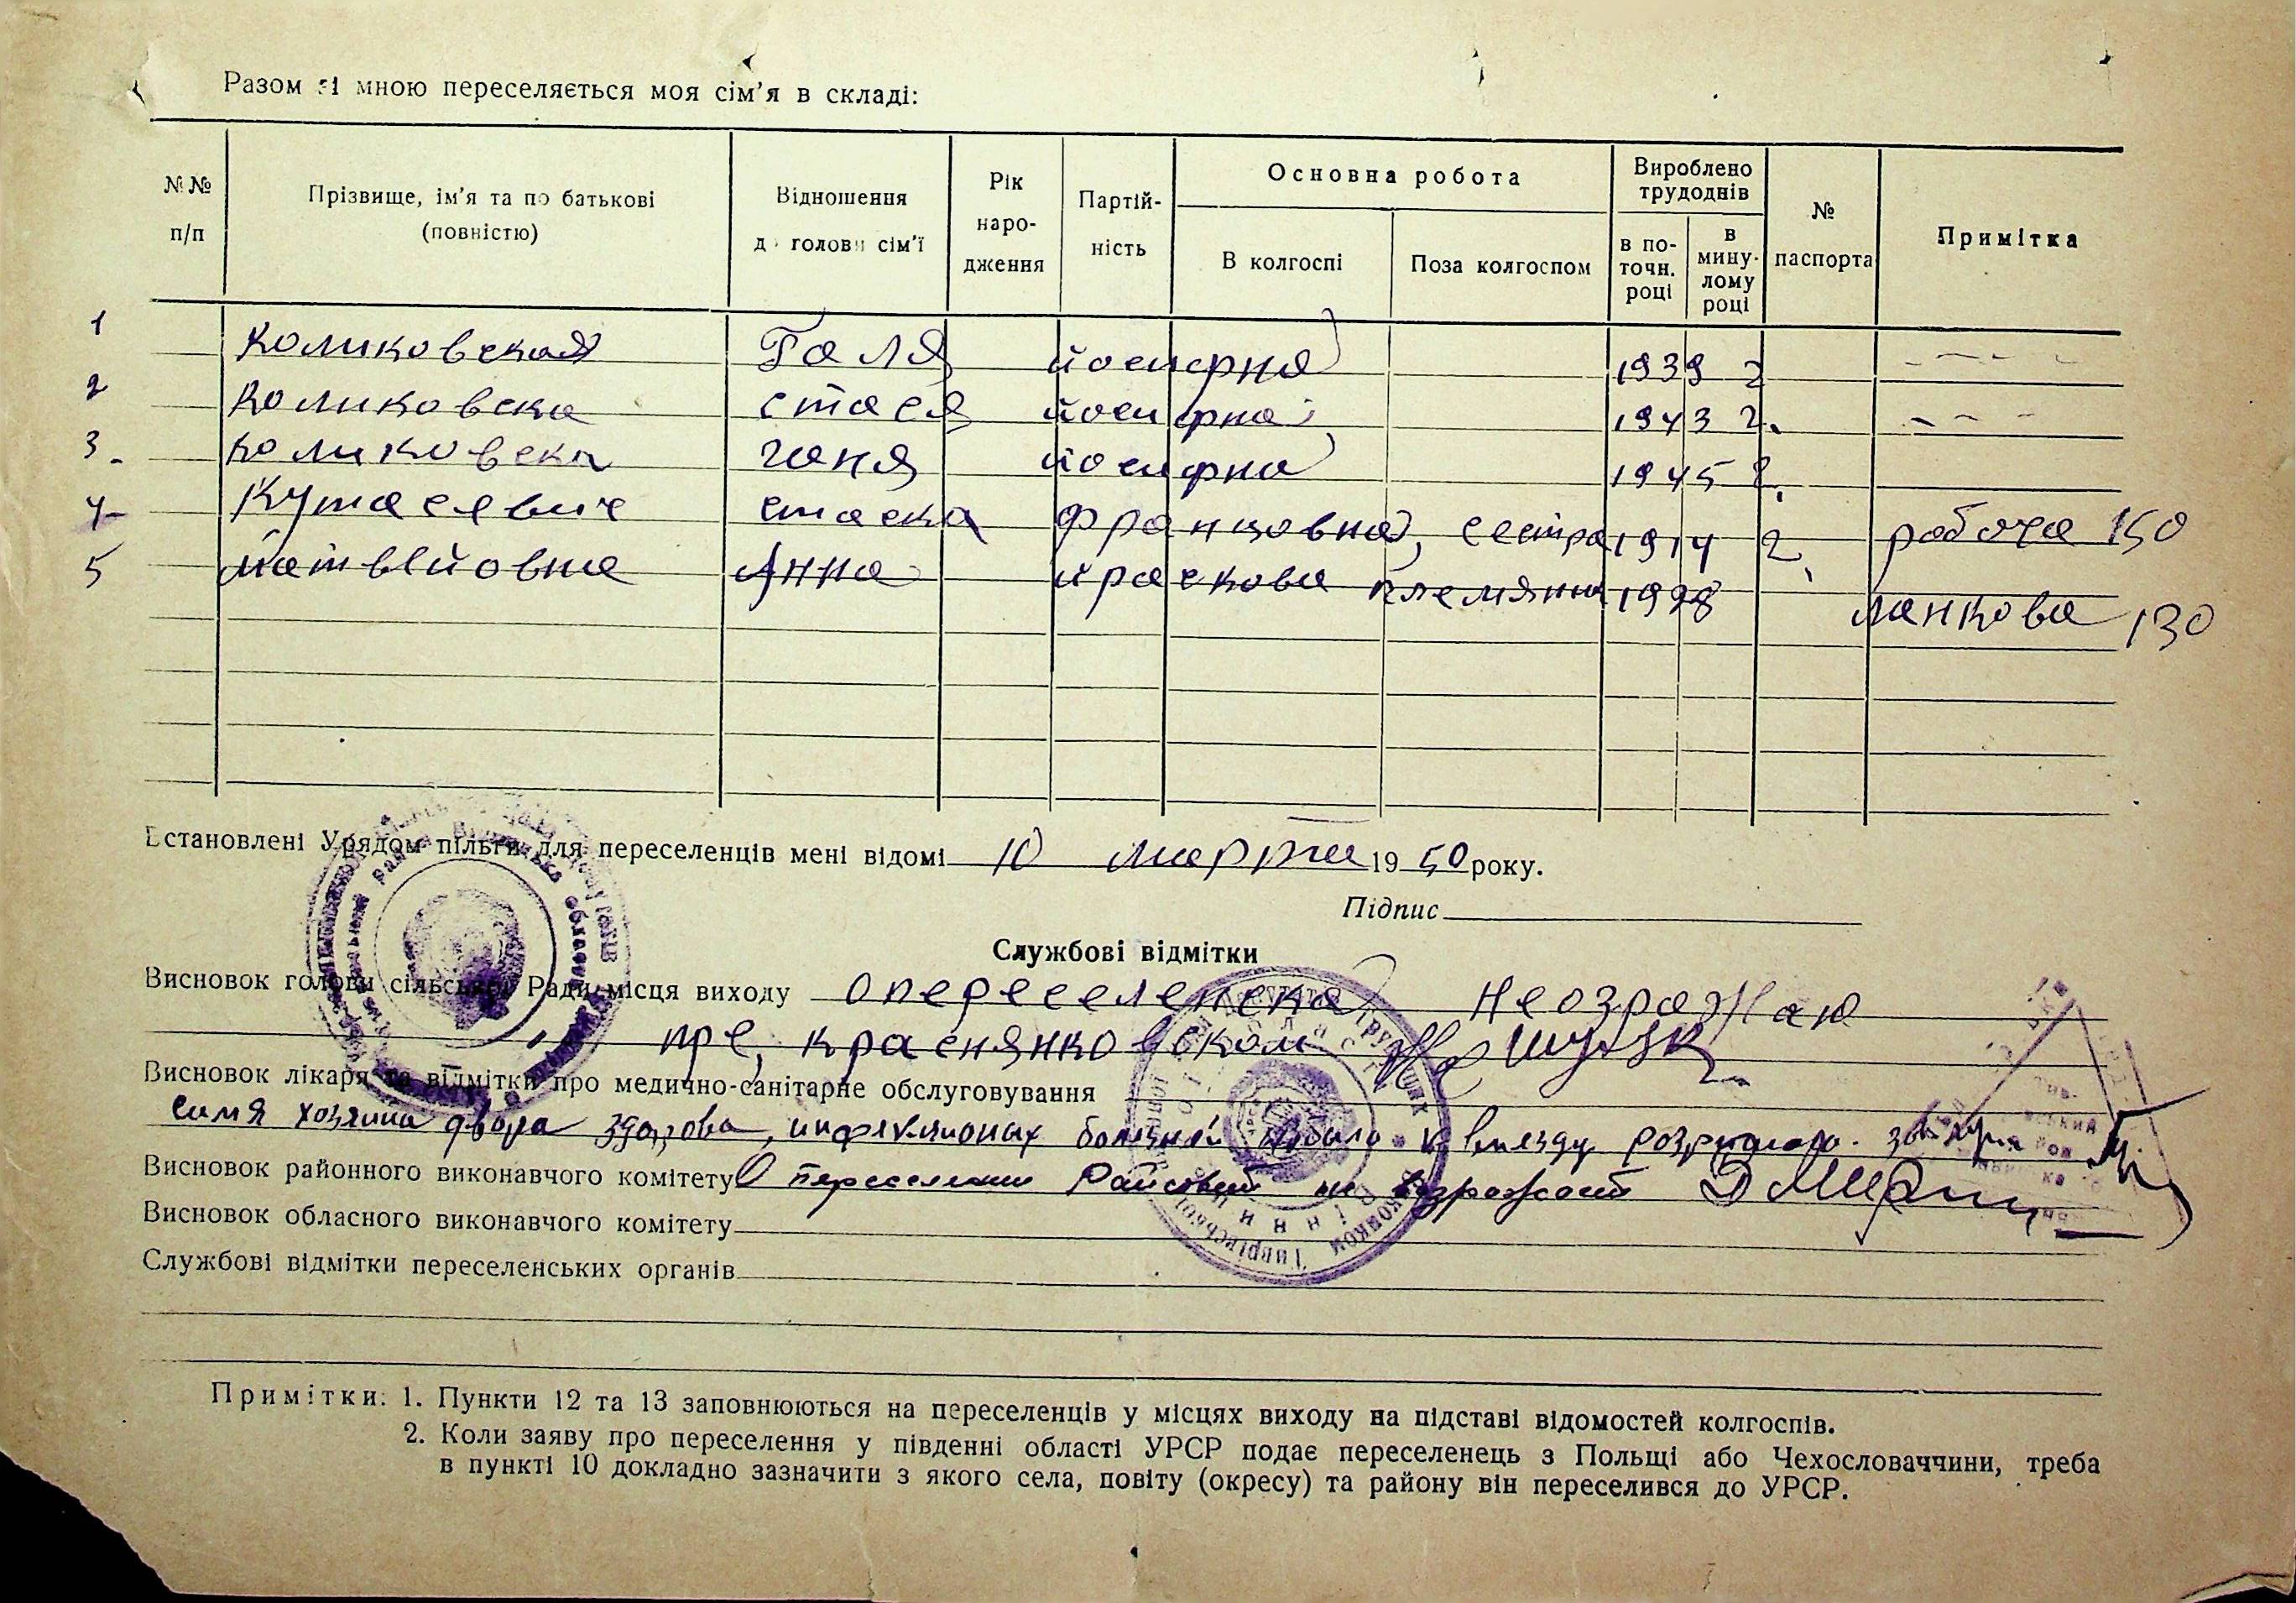 Разом зі мною переселяється моя сім'я в складі:
№№ п/п
Прізвище, ім'я та по батькові (повністю)
Відношення до голови сім'ї
Рік народження
Партійність
Основна робота
В колгоспі
Поза колгоспом
Вироблено трудоднів
в поточн. році
в минулому році
№ паспорта
Примітка
1 Коликовская Галя йосифна 1939 г
2 Коликовска стася йосифна 1943 г.
3. Коликовска ганя йосифна 1945 г.
4 Кутасевич стаска францовна, сестра 1914 г. робоча 150
5 матвійовна Анна 1928 ланкова 130
Встановлені Урядом пільги для переселенців мені відомі 10 марта 1950 року.
Підпис
Службові відмітки
Висновок голови сільської Ради місця виходу о переселенска неозражаю
Висновок лікаря та відмітки про медично-санітарне обслуговування
симя хозяина двора здорова, инфекционых болезней небыло. к выезду
Висновок районного виконавчого комітету О переселении Райсовет не возражает
Висновок обласного виконавчого комітету
Службові відмітки переселенських органів
Примітки: 1. Пункти 12 та 13 заповнюються на переселенців у місцях виходу на підставі відомостей колгоспів.
2. Коли заяву про переселення у південні області УРСР подає переселенець з Польщі або Чехословаччини, треба
в пункті 10 докладно зазначити з якого села, повіту (окресу) та району він переселився до УРСР.